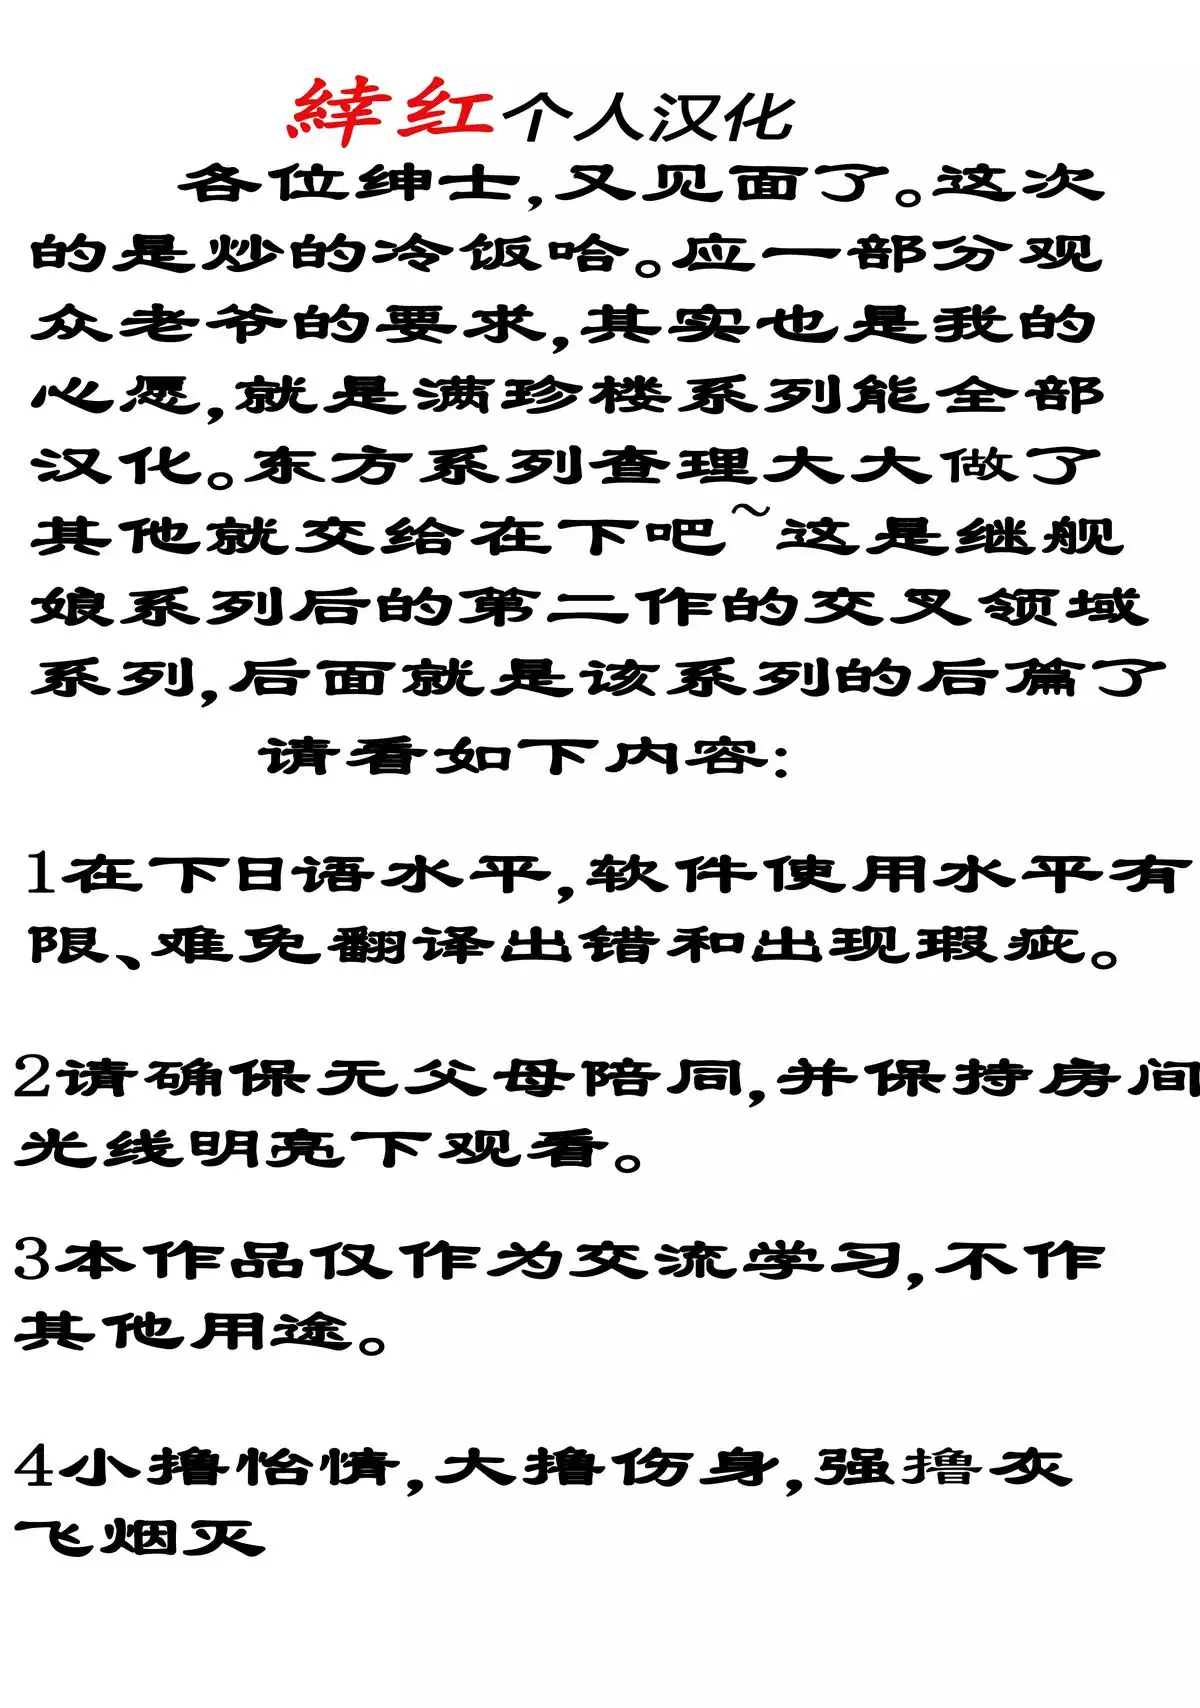 緈红个人汉化
各位绅士,又见面了。这次
的是炒的冷饭哈。应一部分观
众老爷的要求,其实也是我的
心愿,就是满珍楼系列能全部
汉化。东方系列查理大大做了
其他就交给在下吧~这是继舰
娘系列后的第二作的交叉领域
系列,后面就是该系列的后篇了
请看如下内容:
1在下日语水平,软件使用水平有
限、难免翻译出错和出现瑕疵。
2请确保无父母陪同,并保持房间
光线明亮下观看。
3本作品仅作为交流学习,不作
其他用途。
4小撸怡情,大撸伤身,强撸灰
飞烟灭